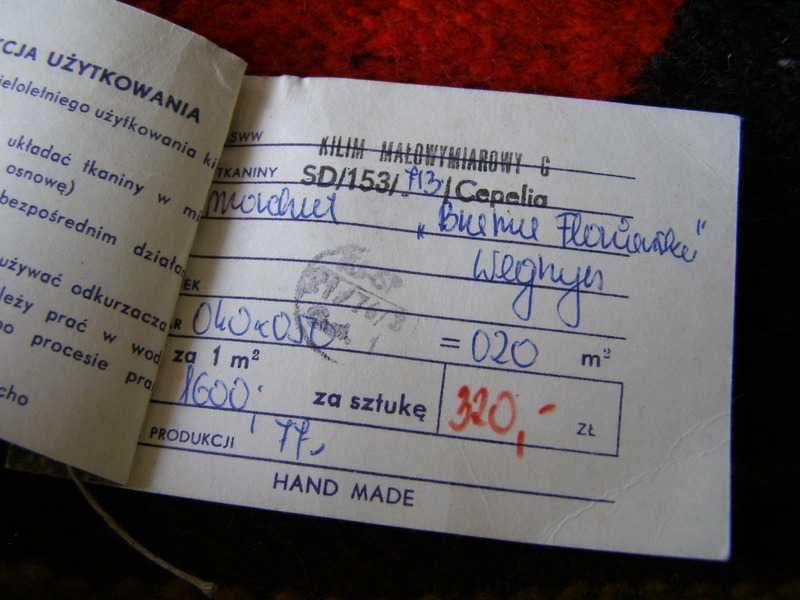 CJA UŻYTKOWANIA
ieloletniego użytkowania ki
układać tkaniny w mi
osnowę)
bezpośrednim działa
używać odkurzacza
leży prać w wod
po procesie pra
cho
SWW
KILIM MAŁOWYMIAROWY C
TKANINY SD/153/713/Cepelia
"
Węgrzyn
EK
R 040x050 = 020 m²
za 1 m²
1600 za sztukę 320,- ZŁ
PRODUKCJI 77
HAND MADE